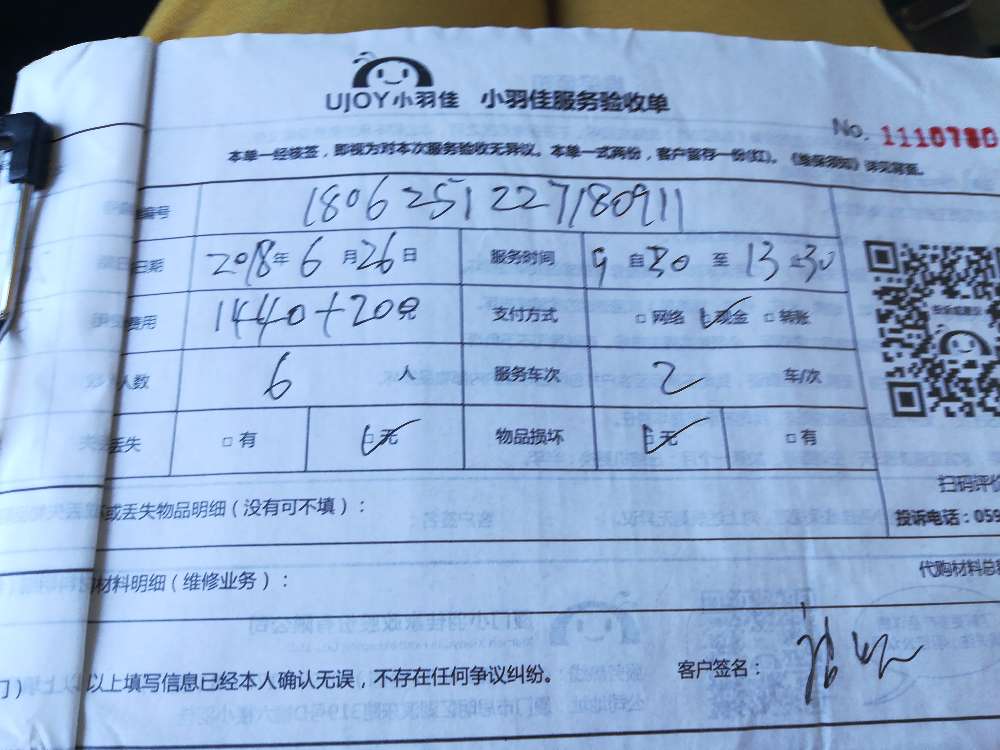 UJOY小羽佳 小羽佳服务验收单
No. 1110780
本单一经核签，即视为对本次服务验收无异议。本单一式两份，客户暂存一份(红)。《维保须知》详见背面。
编号 1806251227180911
日期 2018年6月26日 服务时间 9自30至13止30
费用 1440+20元 支付方式 □网络 ☑现金 □转账
人数 6人 服务车次 2 车/次
丢失 □有 ☑无 物品损坏 ☑无 □有
扫码评价
或丢失物品明细（没有可不填）：
投诉电话：059
材料明细（维修业务）：
代购材料总
门） 以上填写信息已经本人确认无误，不存在任何争议纠纷。 客户签名：